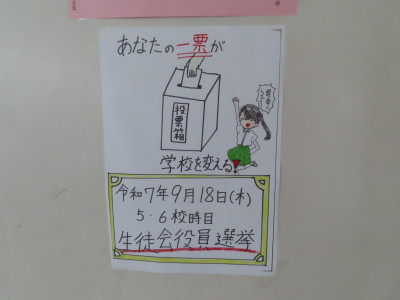 あなたの一票が
投票箱
学校を変える!
令和7年9月18日(木)
5・6校時目
生徒会役員選挙